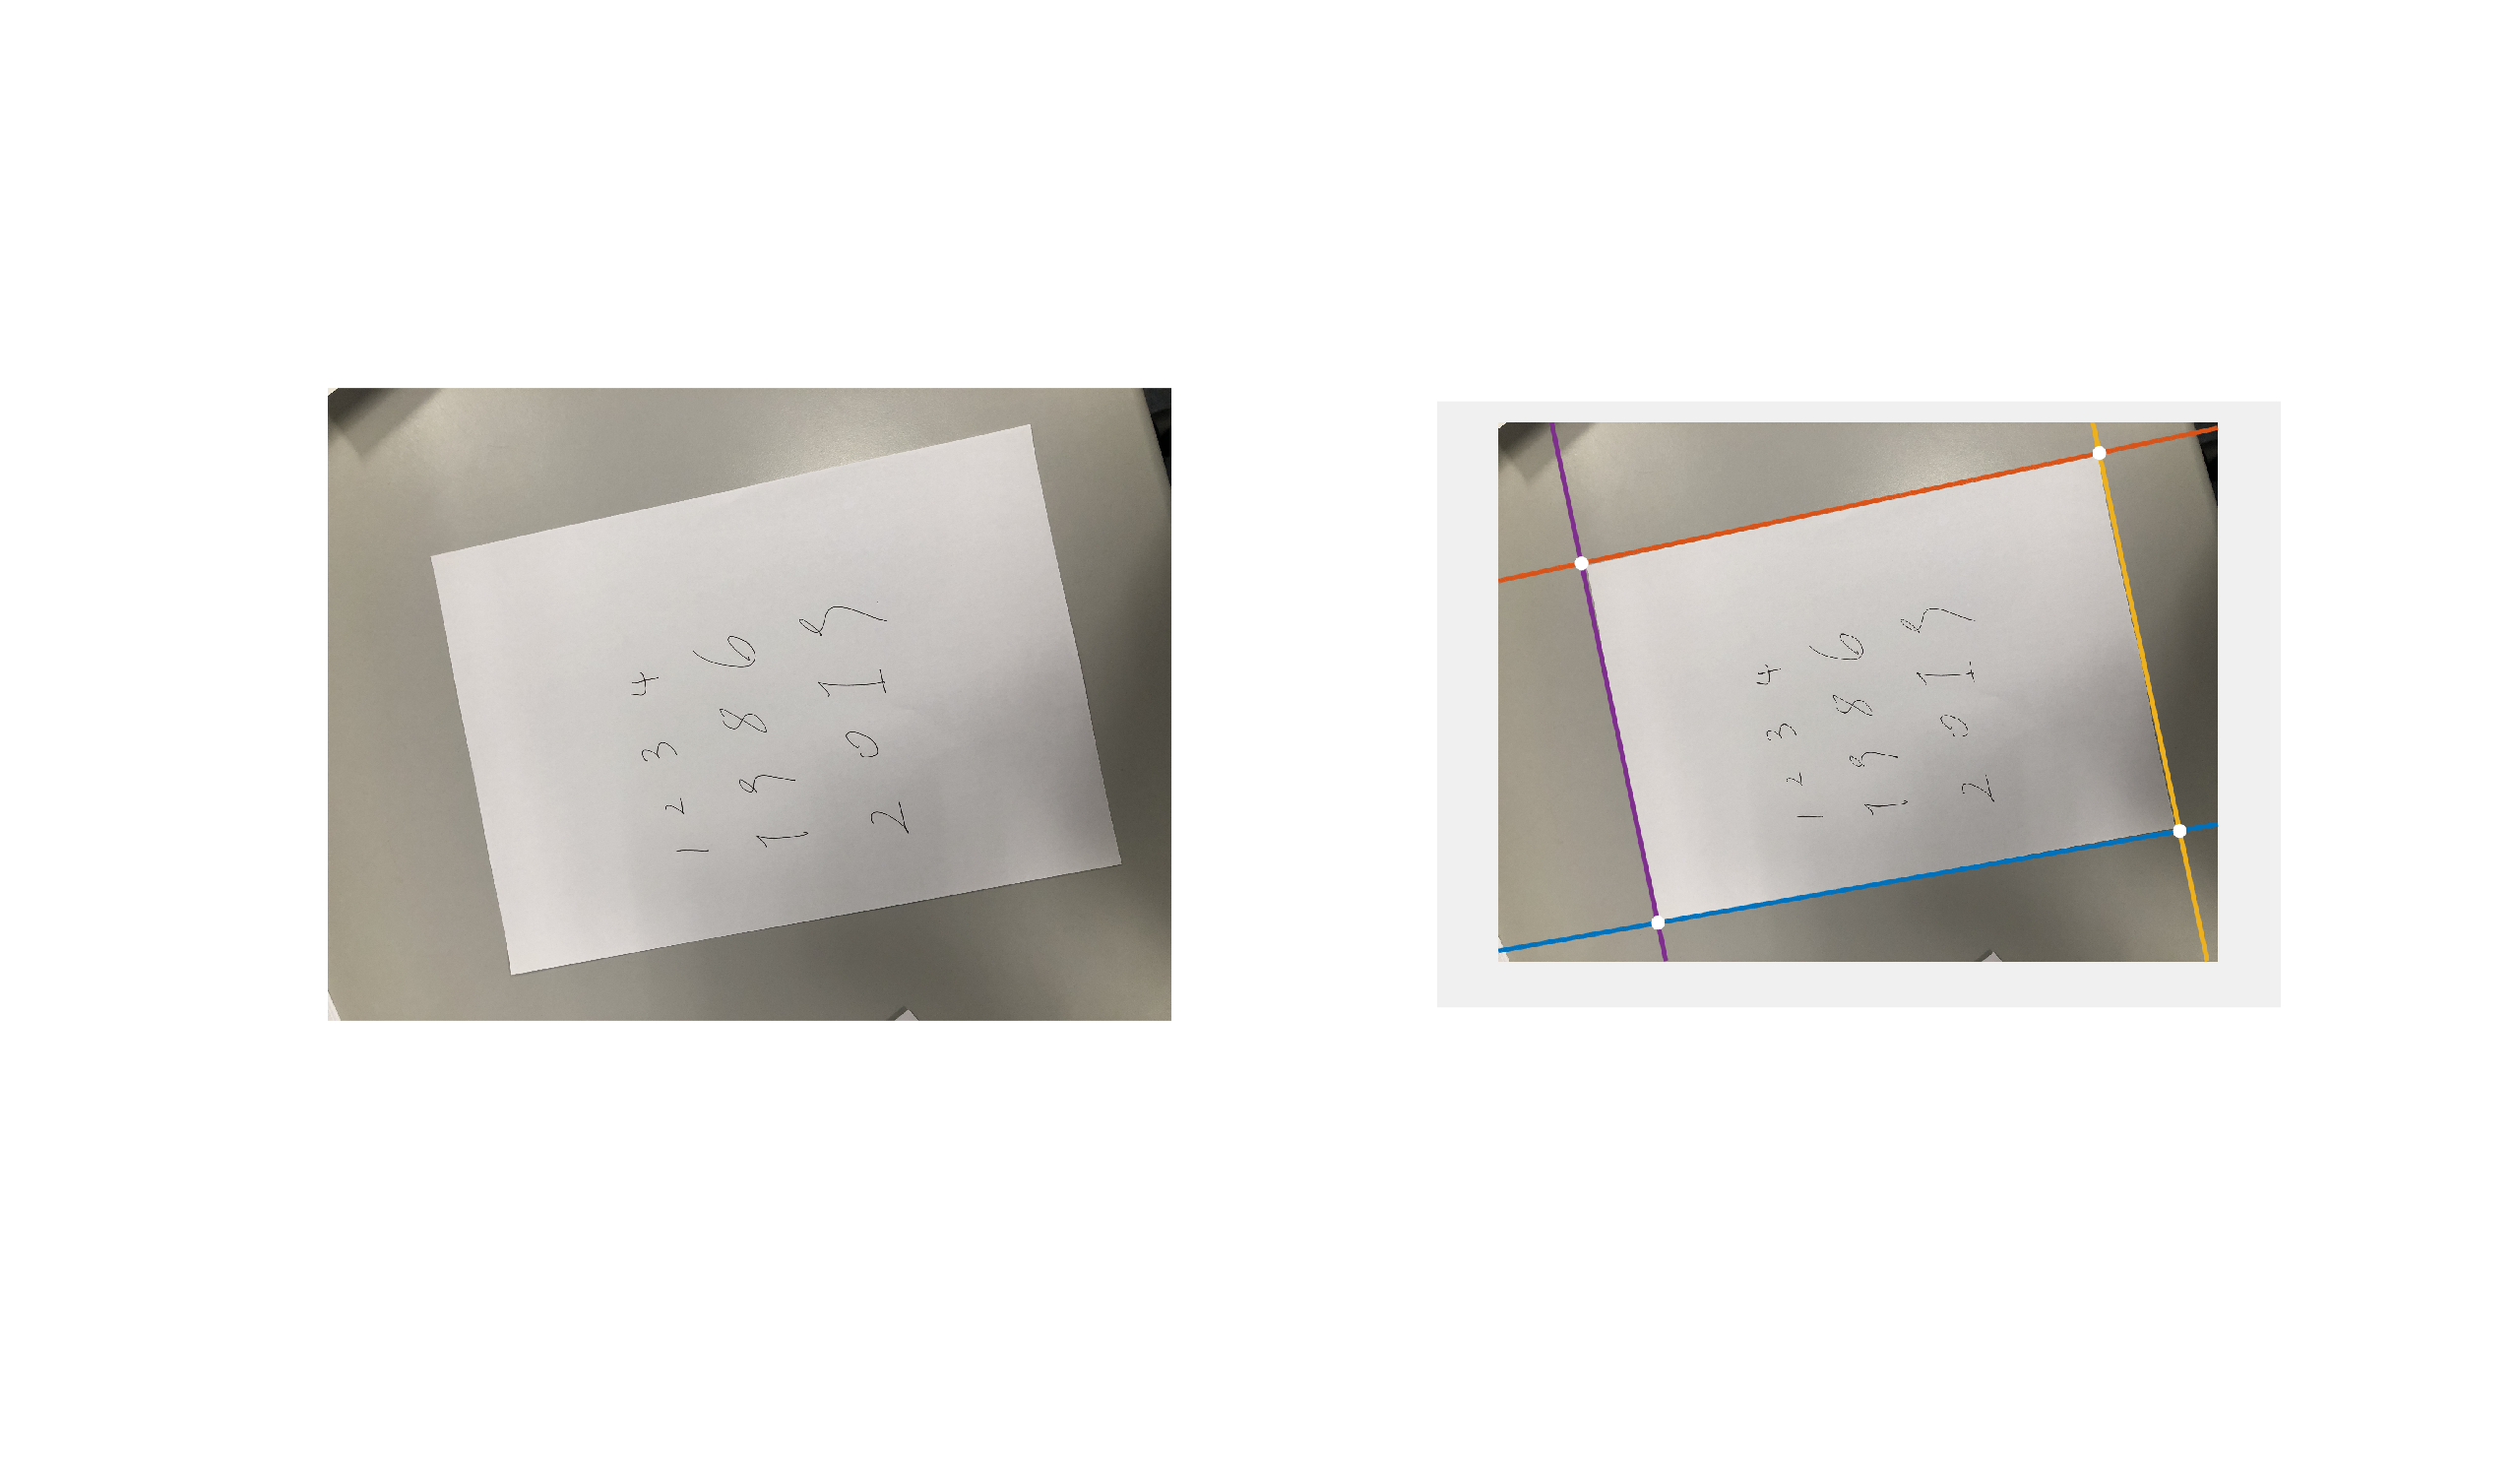 1 2 3 4
1 9 8 6
2 0 1 9
1 2 3 4
1 9 8 6
2 0 1 9